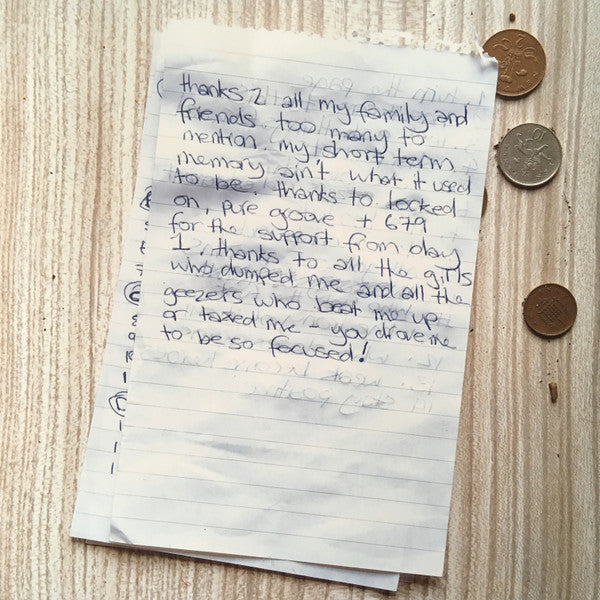 thanks 2 all my family and
friends too many to
mention, my short term
memory ain't what it used
to be, thanks to locked
on, pure groove + 679
for the support from day
1, thanks to all the girls
who dumped me and all the
geezers who beat me up
or taxed me - you drove me
to be so focused!